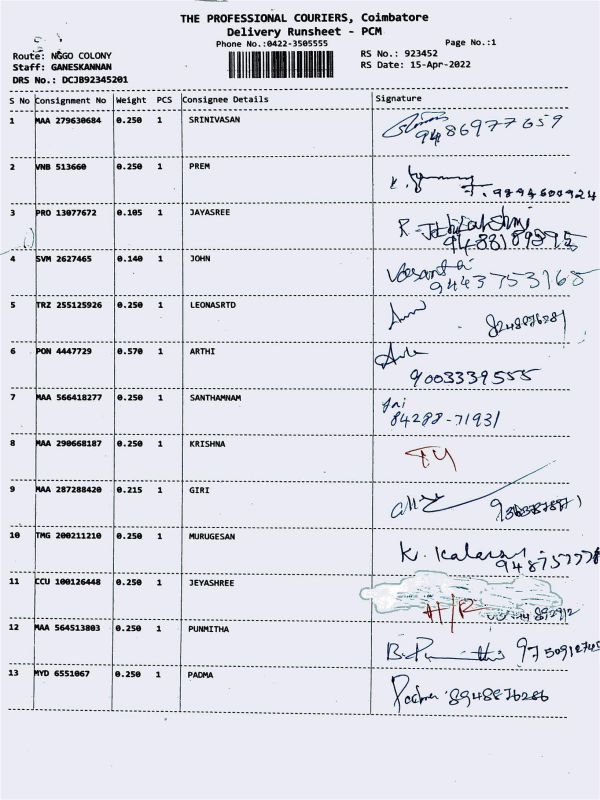 THE PROFESSIONAL COURIERS, Coimbatore
Delivery Runsheet - PCM
Phone No.:0422-3505555
Page No.:1
Route: NGGO COLONY
RS No.: 923452
Staff: GANESKANNAN
RS Date: 15-Apr-2022
DRS No.: DCJB92345201
S No Consignment No Weight PCS Consignee Details Signature
1 MAA 279630684 0.250 1 SRINIVASAN
9486977659
2 VNB 513660 0.250 1 PREM
9894600924
3 PRO 13077672 0.105 1 JAYASREE
4 SVM 2627465 0.140 1 JOHN
Vasantai
9443753168
5 TRZ 255125926 0.250 1 LEONASRTD
6 PON 4447729 0.570 1 ARTHI
9003339555
7 MAA 566418277 0.250 1 SANTHAMNAM
84288-71931
8 MAA 290668187 0.250 1 KRISHNA
9 MAA 287288420 0.215 1 GIRI
10 TMG 200211210 0.250 1 MURUGESAN
11 CCU 100126448 0.250 1 JEYASHREE
H/R
12 MAA 564513803 0.250 1 PUNMITHA
13 MYD 6551067 0.250 1 PADMA
Padma 8948876286